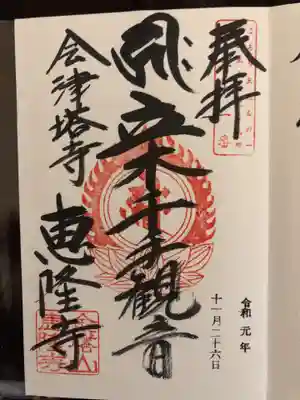 奉拝
立木千手観音
会津塔寺 恵隆寺
令和元年
十一月二十六日